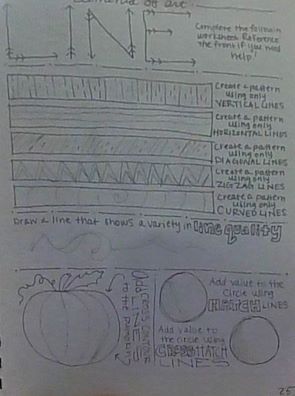 of art
LINE
Complete the following
worksheet. Reference
the front if you need
help!
Create a pattern
using only
VERTICAL LINES
Create a pattern
using only
HORIZONTAL LINES
Create a pattern
using only
DIAGONAL LINES
Create a pattern
using only
ZIGZAG LINES
Create a pattern
using only
CURVED LINES
Draw a line that shows a variety in line quality
Add cross contour
LINES
to the pumpkin
Add value to the
circle using
HATCH LINES
Add value to
the circle using
CROSSHATCH
LINES
25